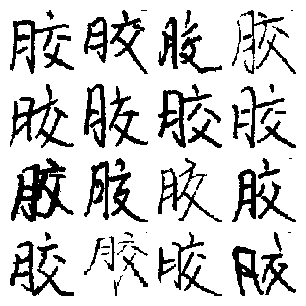 胶胶胶胶
胶胶胶胶
胶胶胶胶
胶胶胶胶